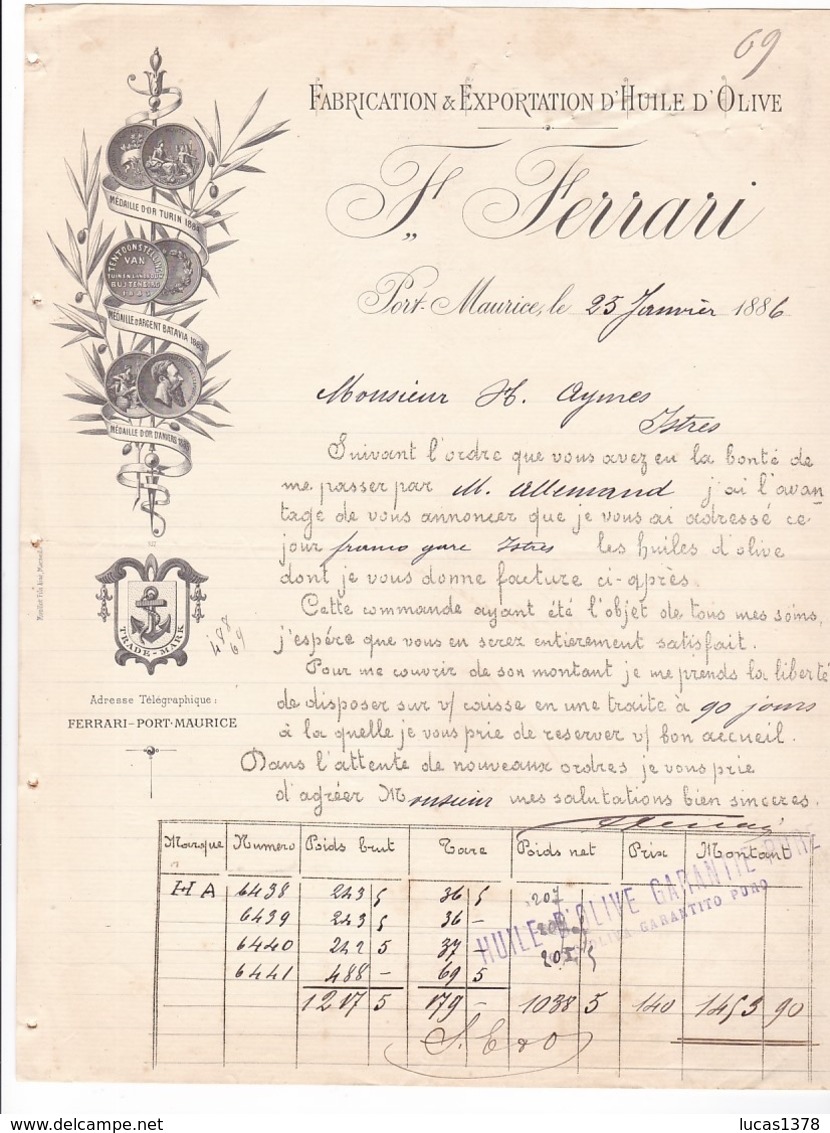 69
FABRICATION & EXPORTATION D'HUILE D'OLIVE
F. Ferrari
Port-Maurice, le 25 Janvier 1886
MÉDAILLE D'OR TURIN 1884
TENTOONSTELLING
VAN
MÉDAILLE D'ARGENT BATAVIA 1883
MÉDAILLE D'OR D'ANVERS 1885
Monsieur H. Aymes
Istres
Suivant l'ordre que vous avez eu la bonté de
me passer par M. Allemand j'ai l'avan
tage de vous annoncer que je vous ai adressé ce
jour franco gare Istres les huiles d'olive
dont je vous donne facture ci-après.
Cette commande ayant été l'objet de tous mes soins,
j'espére que vous en serez entierement satisfait.
Pour me couvrir de son montant je me prends la liberté
de disposer sur v/ caisse en une traite à 90 jours
à la quelle je vous prie de reserver v/ bon accueil.
Dans l'attente de nouveaux ordres je vous prie
d'agréer Monsieur mes salutations bien sinceres.
TRADE-MARK
488
69
Adresse Télégraphique:
FERRARI-PORT-MAURICE
Marque Numero Poids brut Tare Poids net Prix Montant
HA 6438 243 5 36 5 207
6439 243 5 36 -
6440 242 5 37 -
6441 488 - 69 5
1217 5 179 - 1038 5 140 1453 90
HUILE D'OLIVE GARANTIE PURE
OLIVA GARANTITO PURO
S. E & O
www.delcampe.net
lucas1378